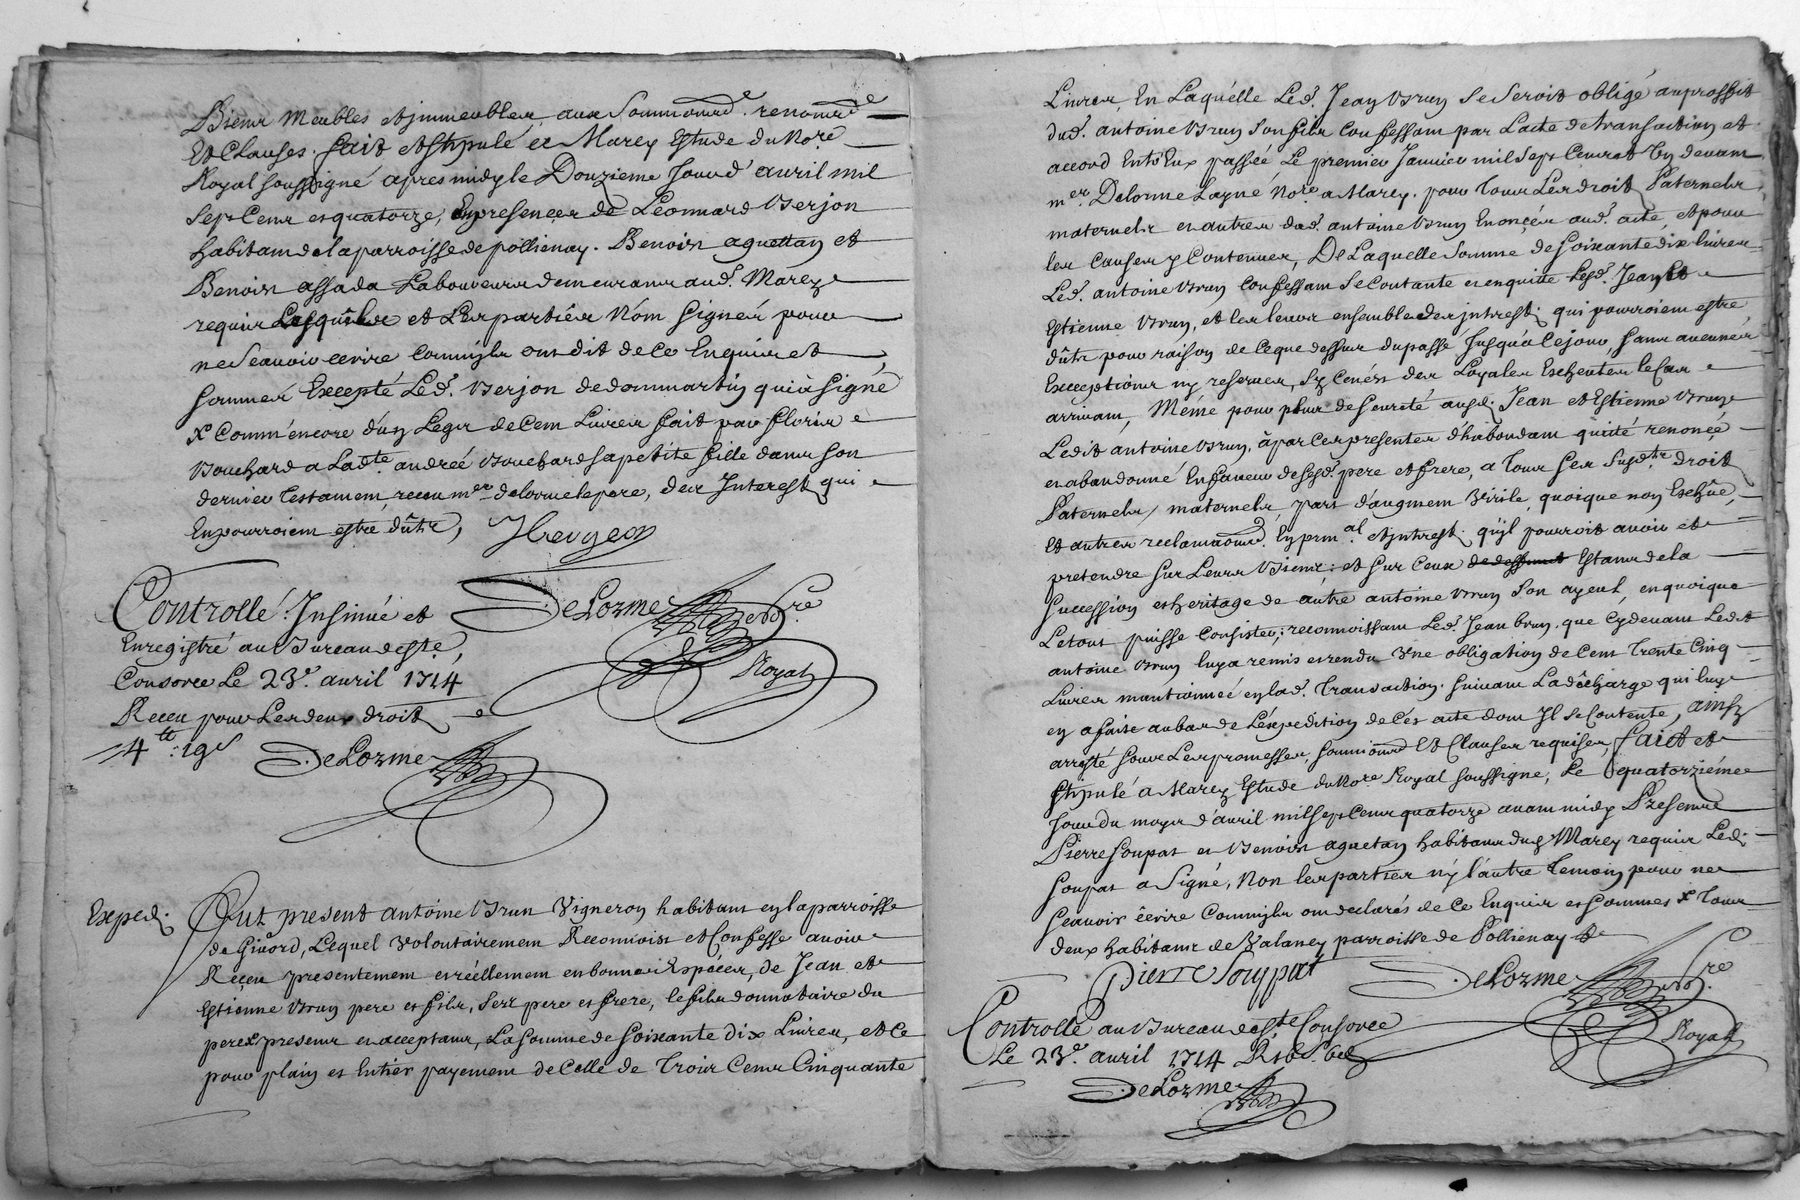 Biens meubles et jmmeubles, aux soummiond^e. renomd^e
Et Clauses. fait et stipulé a Marcy Estude du No^re
Royal soussigné apres midy le Douzieme Jour d'avril mil
sept Cens et quatorze, En presences de Leonnard Berjon
habitant de la parroisse de pollienay. Benoist aguettan et
Benoist assada Laboureurs demeurants aud^t. Marcy
requis Lesquels et Les parties Nont signés pour
ne sçauoir écrire comm'jls ont dit de ce Enquis et
sommés Excepté Led^t. Berjon de dommartin qui à signé
x Comm'encore d'un Legat de Cent Liures fait par floris
Bouchard a Lad^te. andrée Bouchard sa petite fille dans son
dernier Testament receu m^e. delorme le pere, des Interest qui
En pourroient estre dûts,
DeLorme No^re.
Royal
Controllé. Insinué et
Enregistré au Bureau de S^te.
Consorce Le 23^e. auril 1714
Receu pour Les deux droit
4^tt: 19^s
DeLorme
Exped.
Fut present antoine Brun Vigneron habitant en la parroisse
de Giuord, Lequel volontairement Reconnoist et Confesse auoir
Reçeu presentement et réellement en bonnes Espéces, de Jean et
Estienne Brun pere et fils, ses pere et frere, le fils donnataire du
pere presents et acceptants, La somme de soixante dix Liures, et ce
pour plain et Entier payement de Celle de Trois Cens Cinquante
Liures, En Laquélle Led^t. Jean Brun se seroit obligé au proffit
dud^t. antoine Brun son fils Confessant par L'acte de transaction et
accord Entr'Eux passéé Le premier Januier mil sept Cens et Un deuant
m^e. Delorme Layné No^re. a Marcy. pour Tous Les droit Paternels
maternels et autres dud^t. antoine Brun Enoncés aud^t. acte, et pour
les Causes y Contenues, De Laquelle Somme de soixante dix liures
Led^t. antoine Brun Confessant se Contante et en quitte Lesd^t. Jean et
Estienne Brun, et les leurs ensemble des jntrest. qui pourroient estre
dûts pour raison de ce que dessus du passé jusqu'a ce jour, sans aucunes
Exceptions ny reserues, sy ce n'est des Loyales Escheutes le Cas
arriuant, Même pour plus de seureté ausd. Jean et Estienne Brun
Ledit antoine Brun, à par Ces presentes d'habondant quitté renoncé
et abandonné En faueur desesd. pere et frere, a Tous ses susd^ts. droit
Paternels, maternels, part d'augment Virile, quoique non Escheûe,
Et autres reclamaõns. En prin^al. et jntrest. qu'jl pourroit auoir et
pretendre sur Leurs Biens; et sur Ceux Estants de la
succession et heritage de autre antoine Brun son ayeul, en quoique
Le tout puisse Consister; reconnoissant Led^t. Jean brun. que Cydeuant Ledit
antoine Brun luy a remis et rendu Vne obligation de Cent Trente Cinq
Liures mantionnéé en lad^t. Transaction. suiuant La décharge qui luy
en a faite au bas de L'expedition de Ces acte dont Jl se Contente, ainsy
arresté sous Les promesses, soumioñs Et Clauses requises, fait et
stipulé a Marcy Estude du No^re Royal soussigné, Le quatorziéme
Jour du moys d'auril mil sept Cens quatorze auant midy Presents
Pierre Soupat et Benoist aguetan habitants dud. Marcy requis Led.
Soupat a Signé, Non les parties n'y l'autre Temoin pour ne
sçauoir écrire Comm'jls ont declarés de Ce Enquis et sommés x Tous
deux habitants de Valaney parroisse de Pollienay
Pierre Souppat
DeLorme No^re.
Royal
Controllé au Bureau de S^te Consorce
Le 23^e. auril 1714
DeLorme